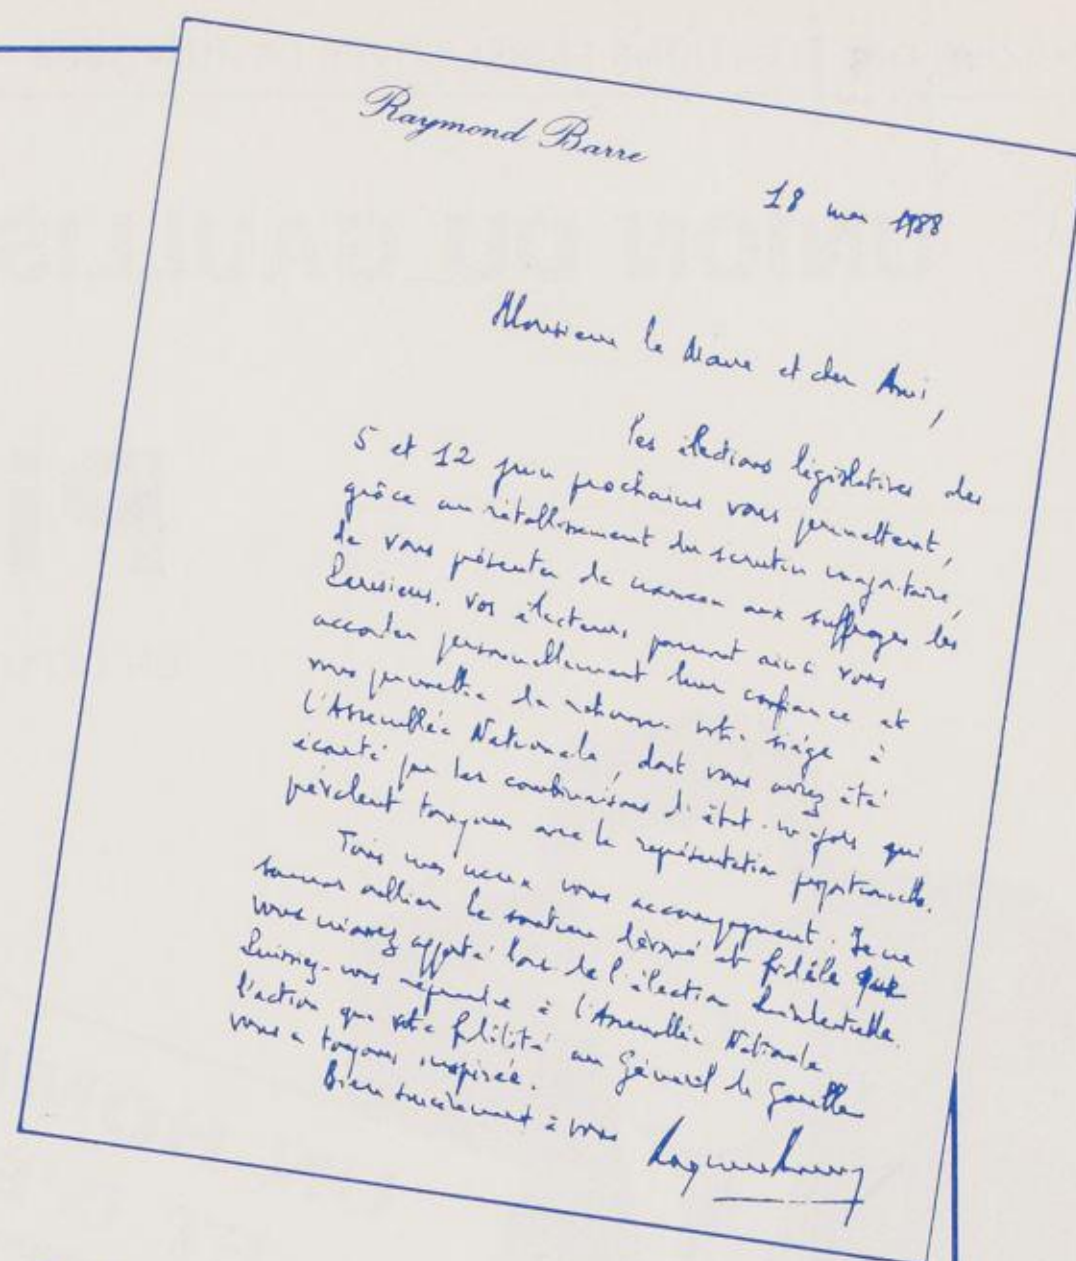 Raymond Barre
18 mai 1988
Monsieur le Maire et cher Ami,
Les élections législatives des
5 et 12 juin prochains vous permettent,
grâce au rétablissement du scrutin majoritaire,
de vous présenter de nouveau aux suffrages des
Parisiens. Vos électeurs pourront ainsi vous
accorder personnellement leur confiance et
vous permettre de retrouver votre siège à
l'Assemblée Nationale, dont vous aviez été
écarté par les combinaisons d'états-majors qui
prévalent toujours avec la représentation proportionnelle.
Tous mes vœux vous accompagnent. Je ne
saurais oublier le soutien dévoué et fidèle que
vous m'avez apporté lors de l'élection Présidentielle.
Puissiez-vous reprendre à l'Assemblée Nationale
l'action que votre fidélité au Général de Gaulle
vous a toujours inspirée.
Bien sincèrement à vous
Raymond Barre